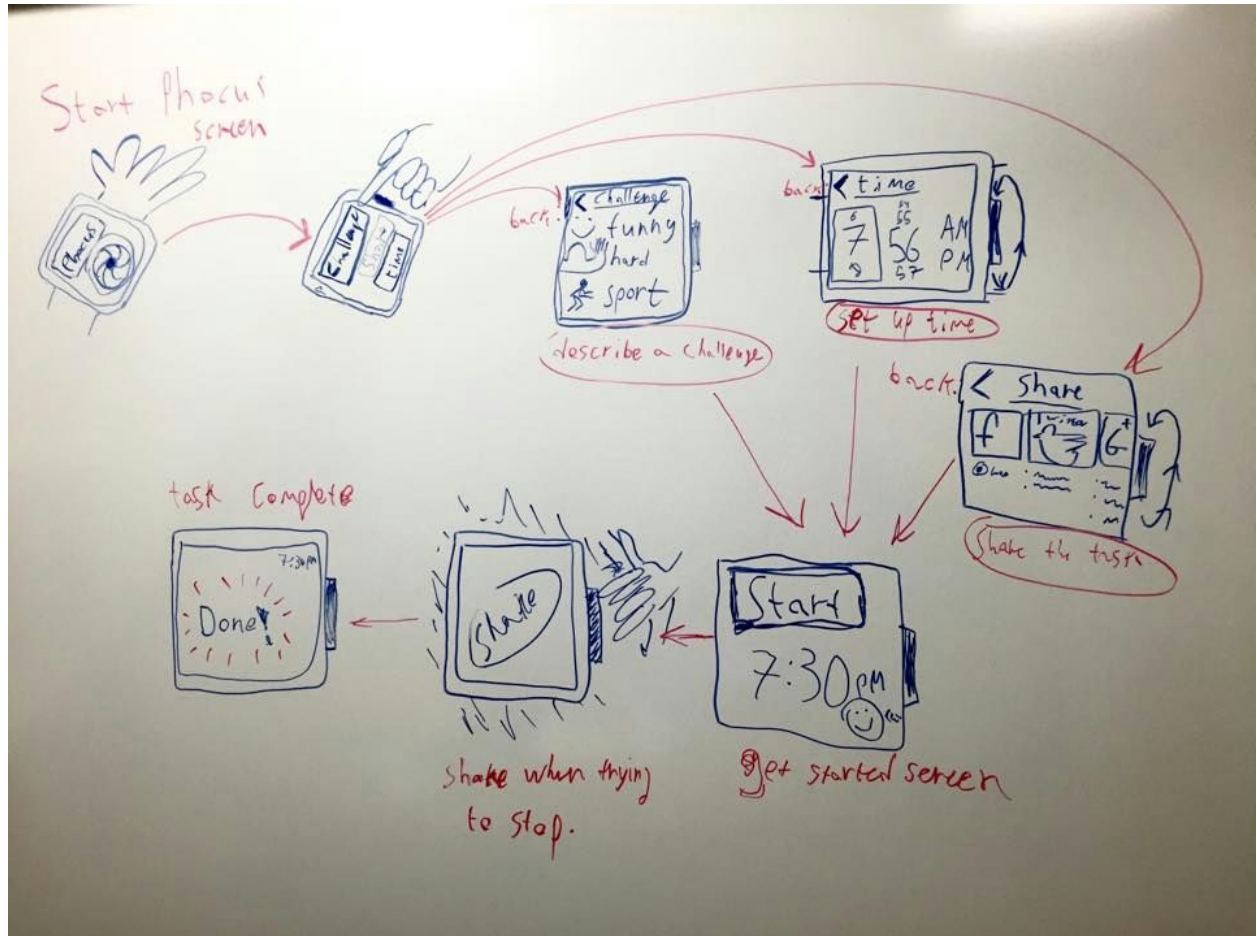 Start Phocus
screen
Phocus
Challenge
Share
time
back.
< Challenge
funny
hard
sport
describe a challenge
back.
< time
6
7
8
55
56
57
AM
PM
Set up time
back.
< Share
f
G+
Share the task
Start
7:30 PM
get started screen
Shake
shake when trying
to stop.
task Complete
7:30 PM
Done!